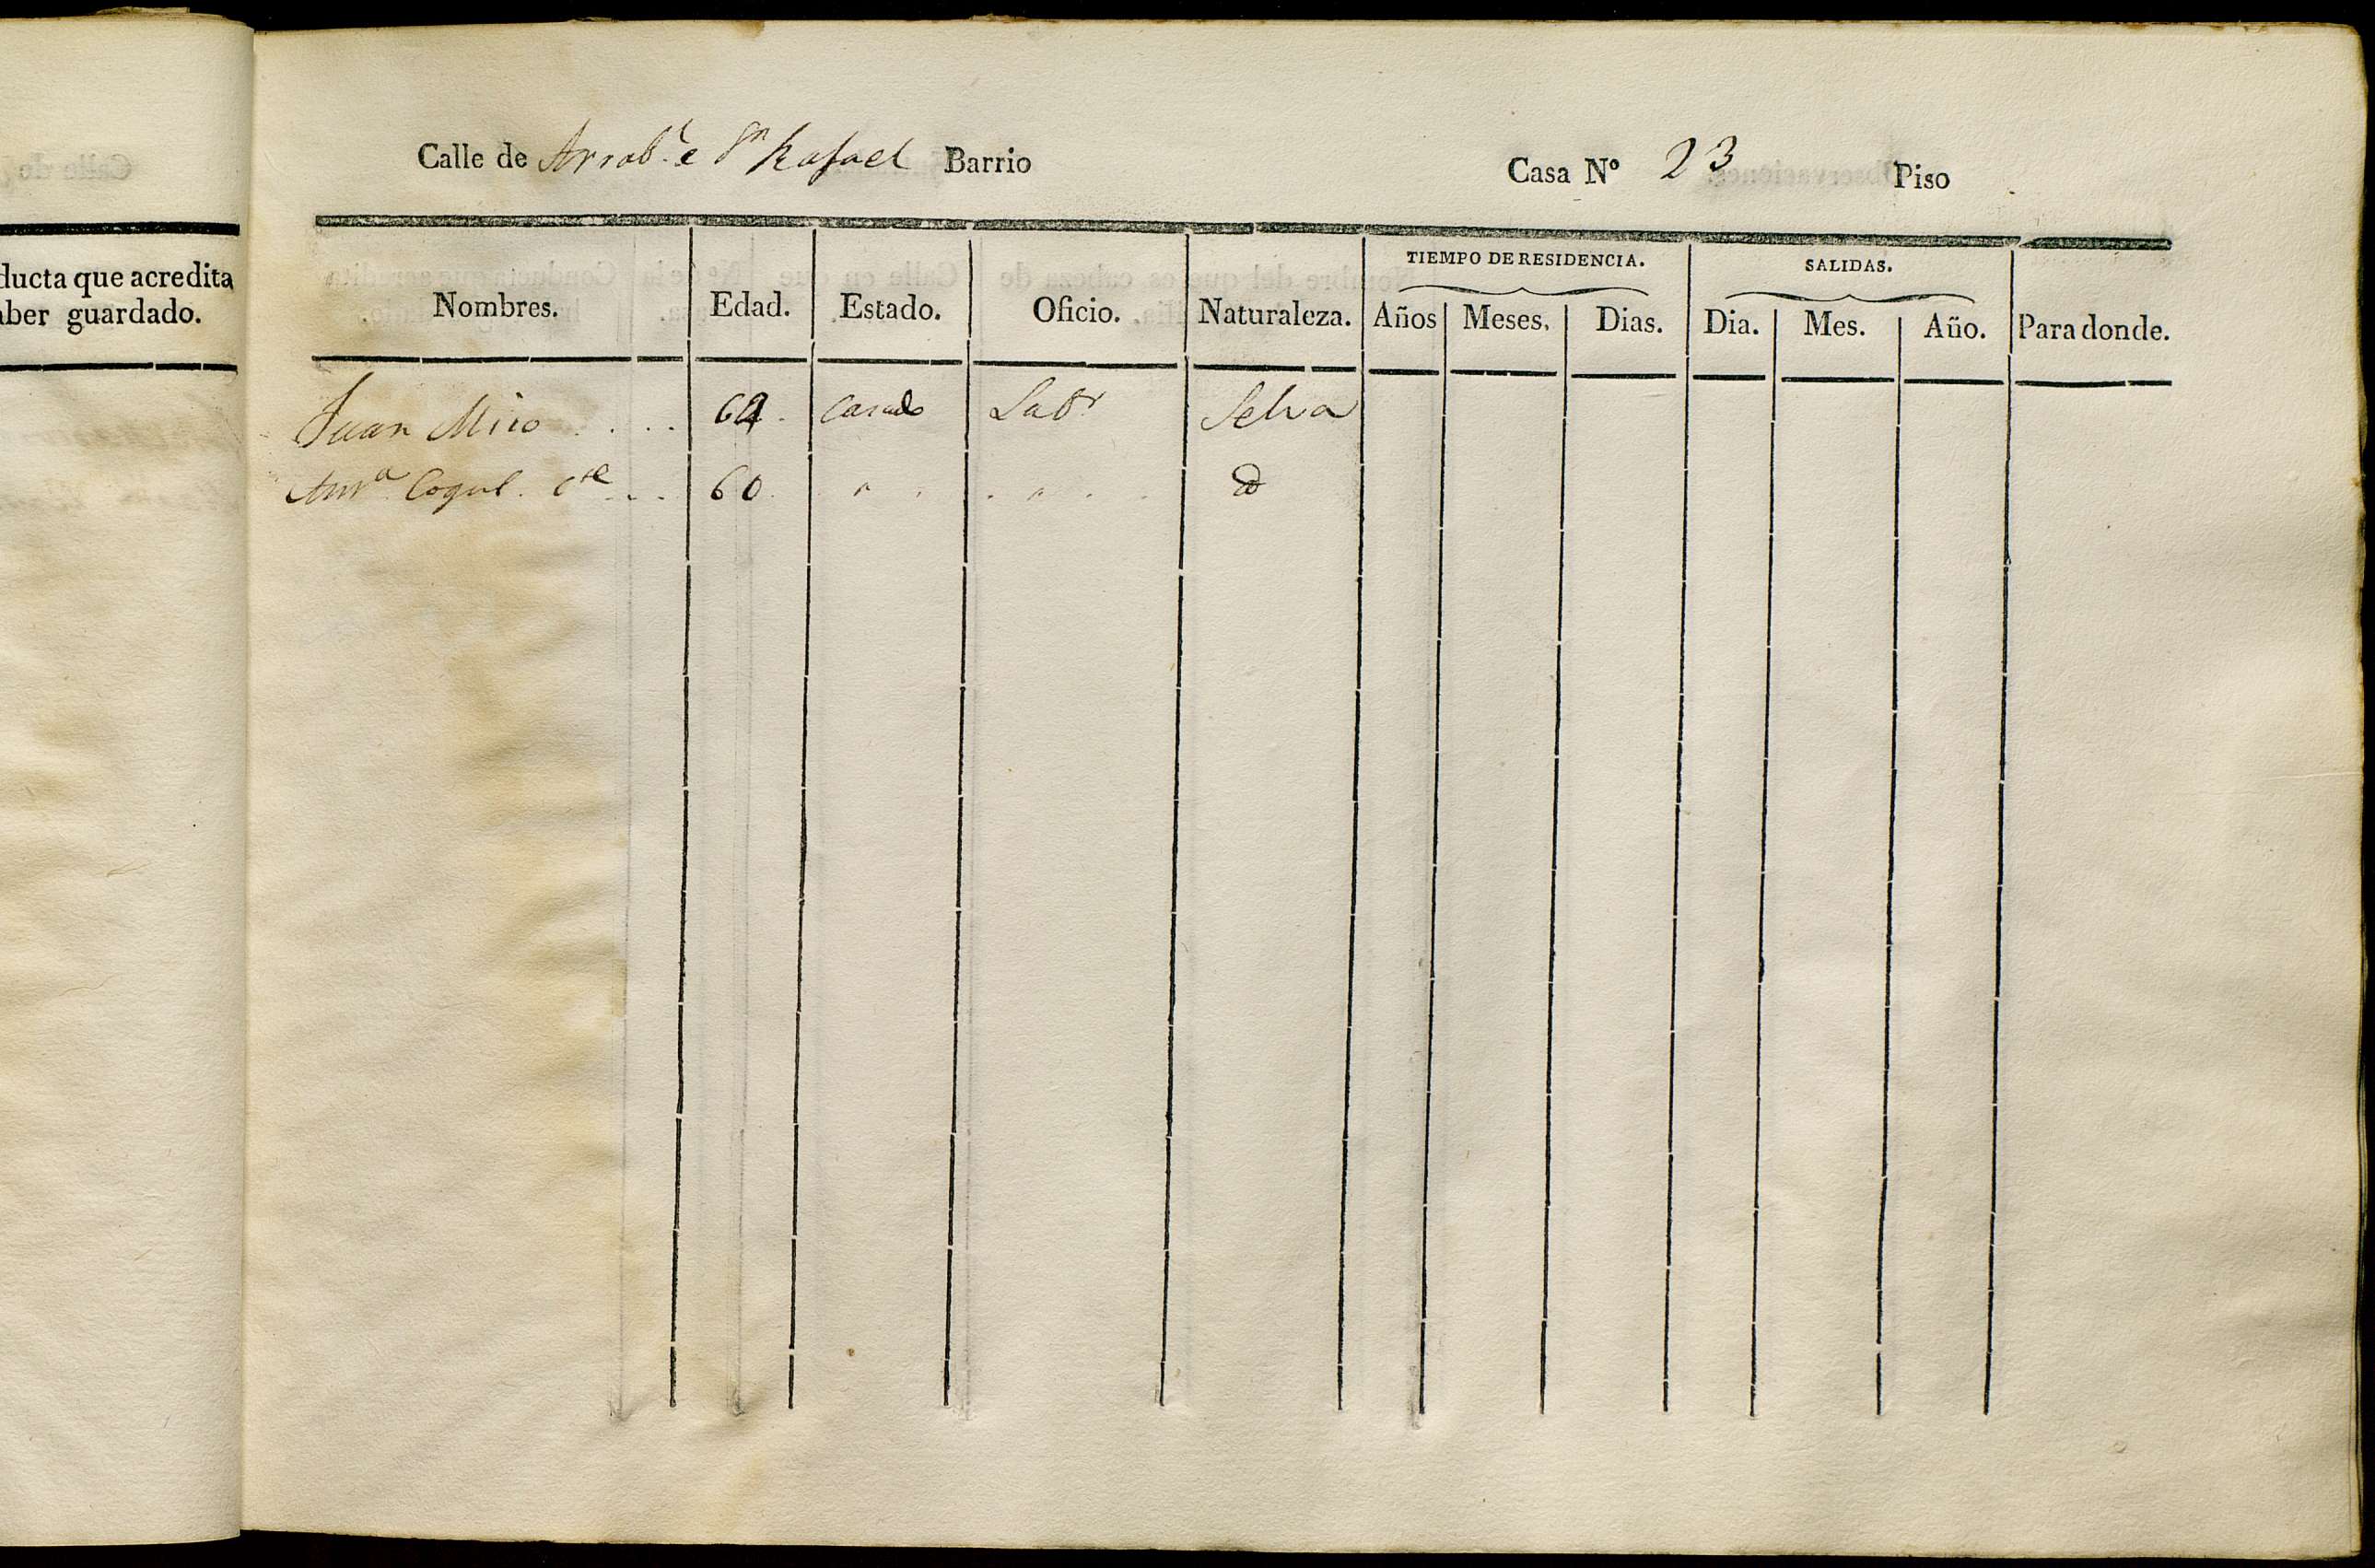 ducta que acredita
aber guardado.
Calle de Arrab.l e Sn Rafael Barrio
Casa Nº 23 Piso
TIEMPO DE RESIDENCIA. SALIDAS.
Nombres. Edad. Estado. Oficio. Naturaleza. Años Meses. Dias. Dia. Mes. Año. Para donde.
Juan Miro . . . . 64. Casado Labr Selva
Anta Cogul. cte . . . 60. " . . " . . do